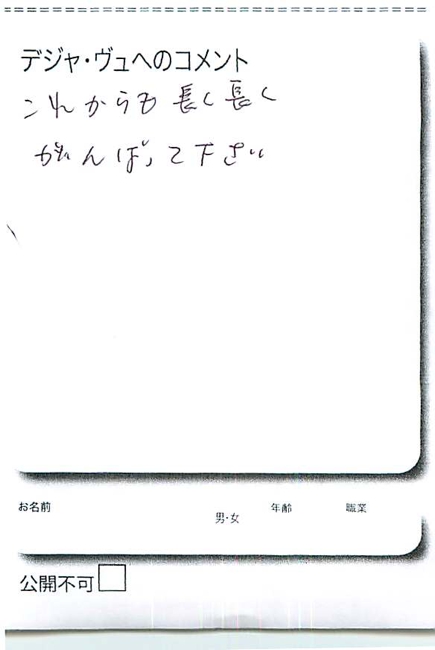 デジャ・ヴュへのコメント
これからも長く長く
がんばって下さい
お名前
男・女
年齢
職業
公開不可